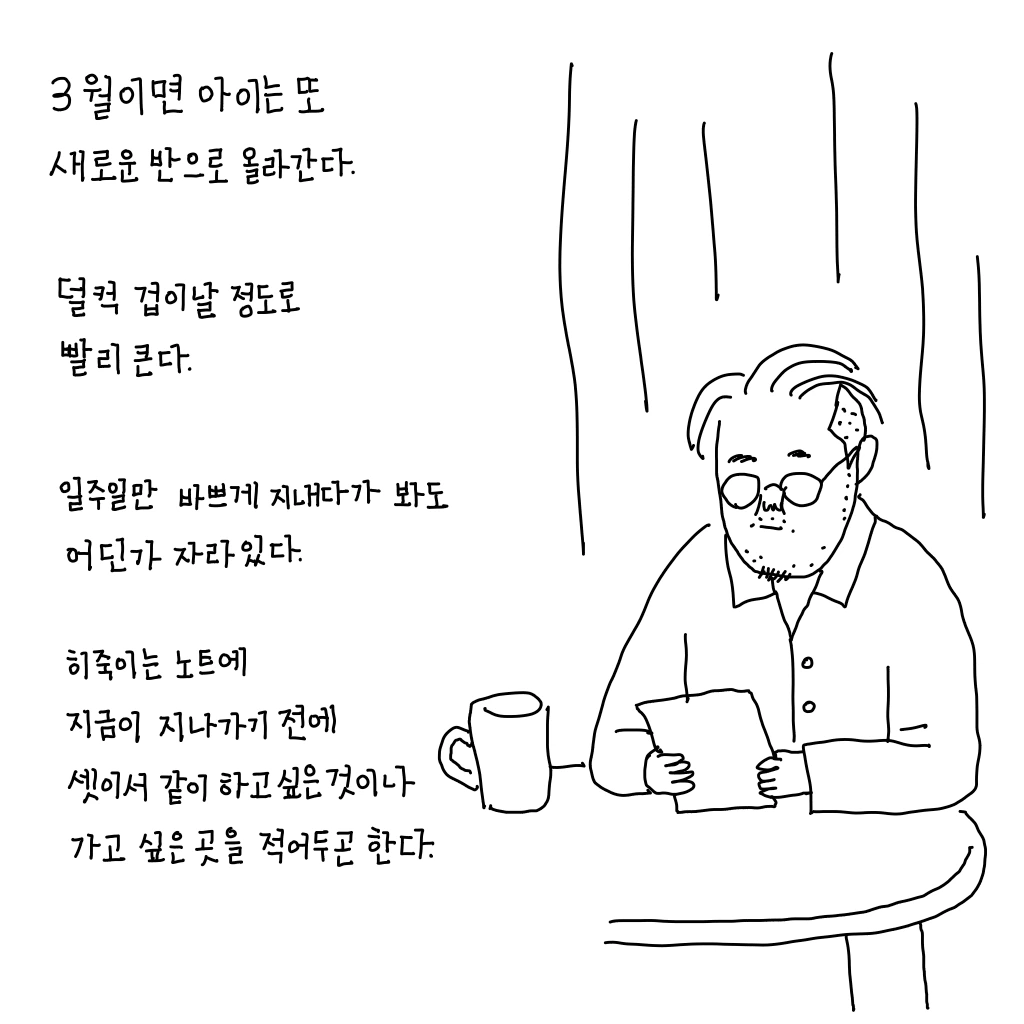 3월이면 아이는 또
새로운 반으로 올라간다.
덜컥 겁이날 정도로
빨리 큰다.
일주일만 바쁘게 지내다가 봐도
어딘가 자라있다.
히죽이는 노트에
지금이 지나가기 전에
셋이서 같이 하고싶은것이나
가고 싶은 곳을 적어두곤 한다.